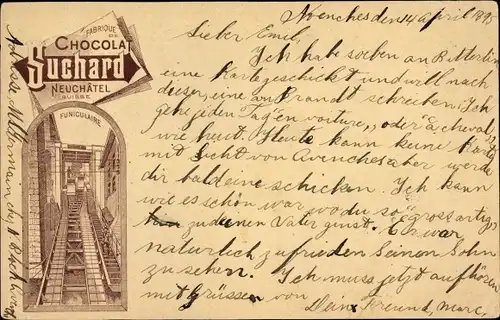 FABRIQUE
DE
CHOCOLAT
Suchard
NEUCHÂTEL
SUISSE
FUNICULAIRE
Avenches den 14 April 1895
Lieber Emil,
Ich habe soeben an Rütterlin
eine Karte geschickt und will nach
dieser, eine an Brandt schreiben. Ich
gehe jeden Tag "en voiture" oder "à cheval,
wie heut. Heute kann keine Karte
mit Sicht von Avenches aber werde
dir bald eine schicken. Ich kann
wie es schön war wo du so "grossartig"
zu deinen Vater ginst. Er war
natürlich zufrieden Seinen Sohn
zu sehen. Ich muss jetzt aufhören
mit Grüssen von
Dein Freund, Marc,
Adresse,
bei